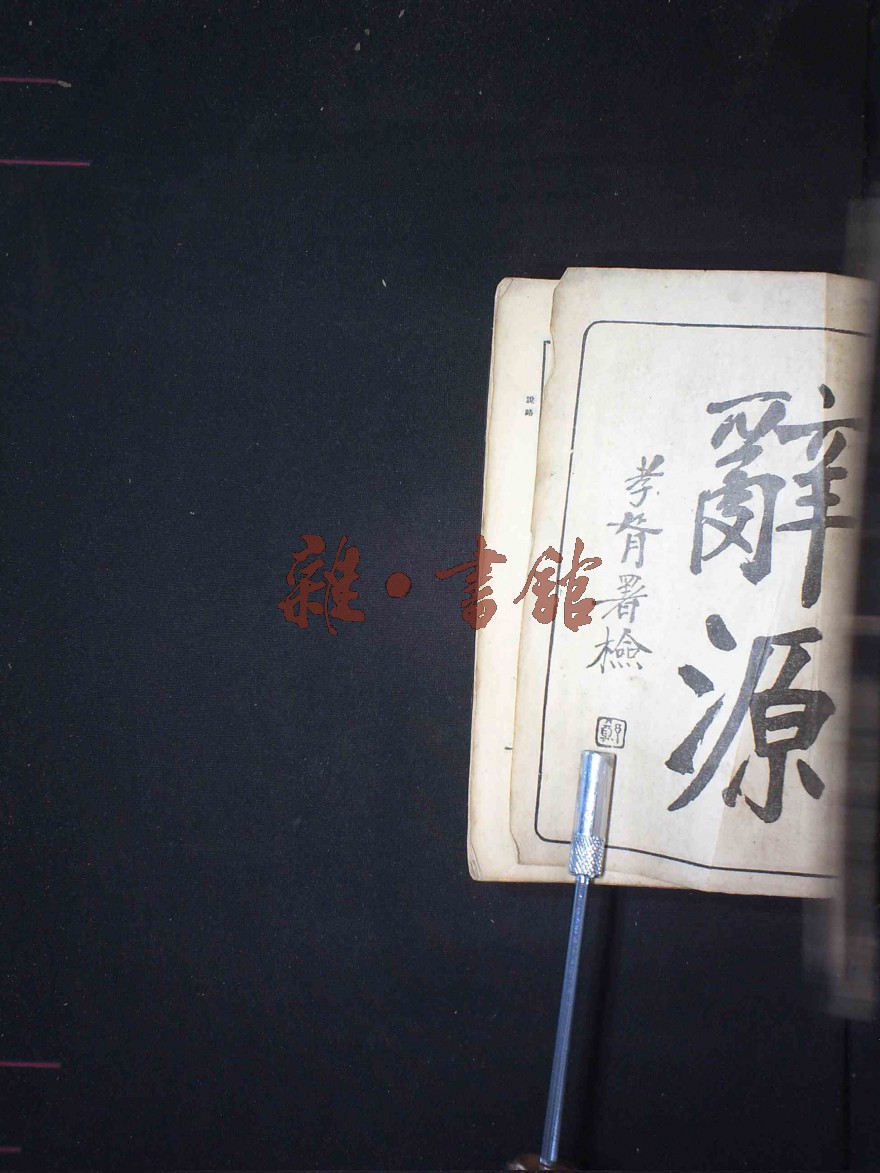 辭源
孝胥署檢
鄭
說略
雜·書館